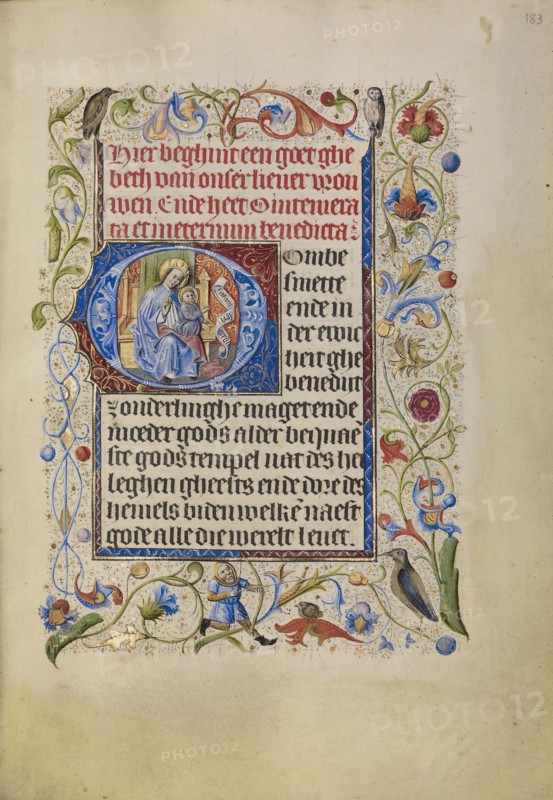 183
Hier beghint een goet ghe
beth van onser lieuer vrou
wen Ende heet O intemera
ta et in eternum benedicta
Ombe
smette
ende in
der ewic
heit ghe
benedijt
zonderlinghe maget ende
moeder gods alder bequaē
ste gods tempel uat des hei
leghen gheests ende dore des
hemels biden welkē naest
gode alle die werelt leuet.
PHOTO12